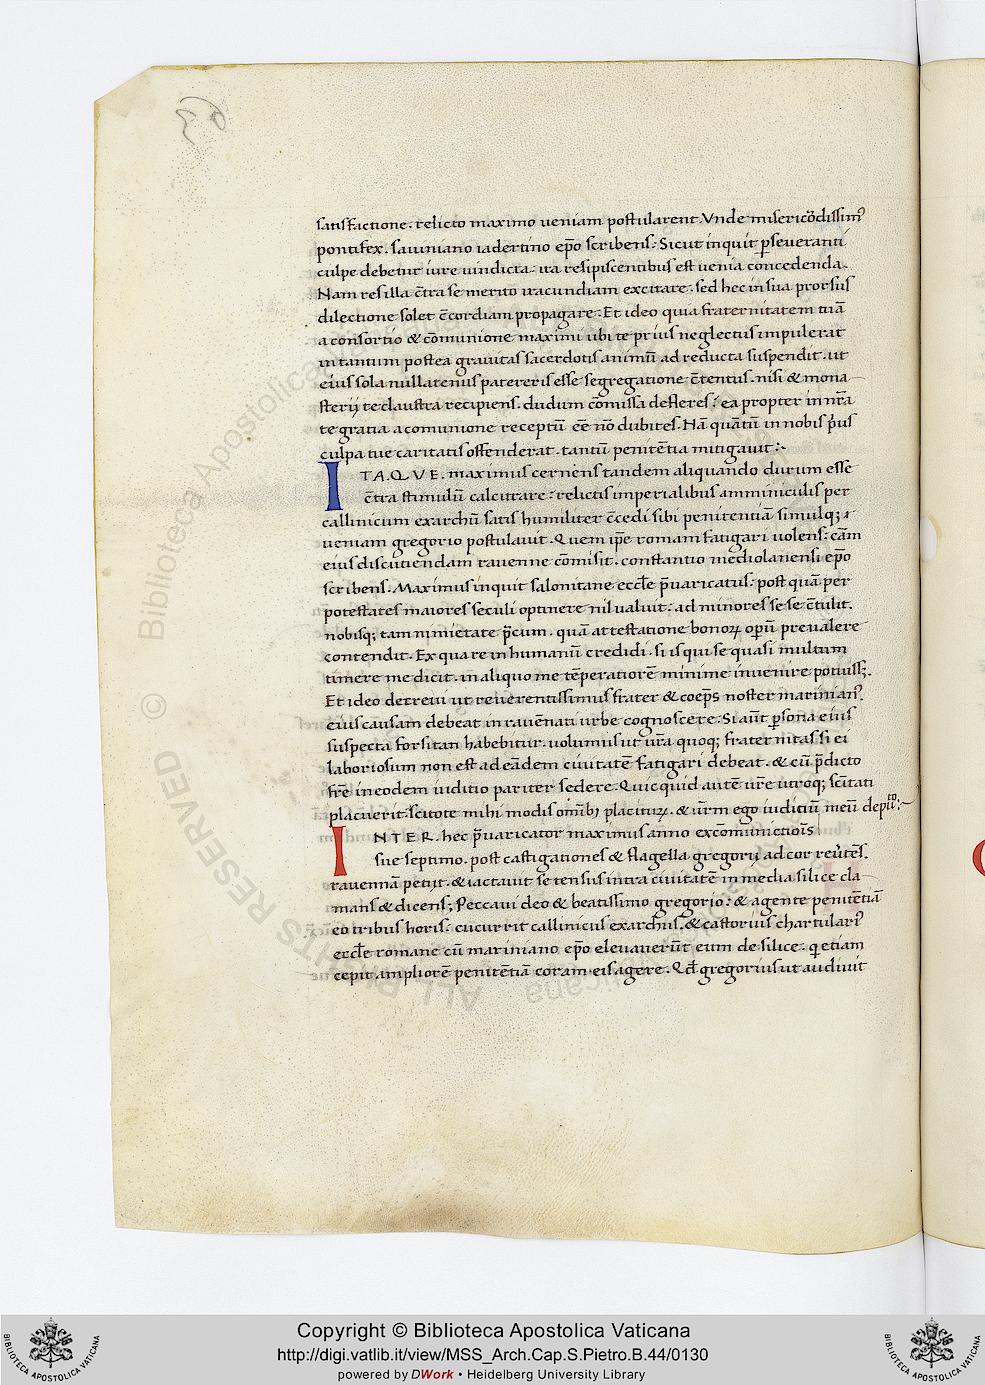 63
satisfactione. relicto maximo ueniam postularent. Vnde misericōdissim⁹
pontifex. sauiniano iadertino ep̄o scribens: Sicut inquit ꝑseueranti
culpe debetur iure uindicta. ita resipiscentibus est uenia concedenda.
Nam res illa c̄tra se merito iracundiam excitare. sed hec in sua prorsus
dilectione solet c̄cordiam propagare. Et ideo quia fraternitatem tuā
a consortio & cōmunione maximi ubi te prius neglectus impulerat
in tantum postea grauitas sacerdotis animū ad reducta suspendit. ut
eius sola nullatenus patereris esse segregatione c̄tentus. nisi & mona
sterij te claustra recipiens. dudum cōmissa defleres: ea propter in nr̄a
te gratia a comunione receptū eē nō dubites. Nā quātū in nobis p̄us
culpa tue caritatis offenderat. tantū penitētia mitigauit:
ITAQVE. maximus cernens tandem aliquando durum esse
c̄tra stimulū calcitrare: relictis imperialibus amminiculis per
callinicum exarchū satis humiliter c̄cedi sibi penitentiā simulq;
ueniam gregorio postulauit. Quem ip̄e romam fatigari nolens: cām
eius discutiendam rauenne cōmisit. constantio mediolanensi ep̄o
scribens. Maximus inquit salonitane eccl̄e p̄uaricatus: post quā per
potestates maiores seculi optinere nil ualuit: ad minores se se c̄tulit.
nobisq; tam nimietate p̄cum. quā attestatione bonoꝝ opū preualere
contendit. Ex qua re in humanū credidi. si is qui se quasi multum
timere me dicit. in aliquo me tēperatiorē minime inuenire potuiss;.
Et ideo decreui ut reuerentissimus frater & coep̄s noster marinian⁹
eius causam debeat in rauēnati urbe cognoscere: Si aūt ꝑsona eius
suspecta forsitan habebitur. uolumus ut ur̄a quoq; fraternitas si ei
laboriosum non est ad eādem ciuitatē fatigari debeat. & cū p̄dicto
fr̄e in eodem iuditio pariter sedere. Quicquid autē ur̄e utroq; sc̄itati
placuerit. scitote mihi modis omīb; placituꝝ. & ur̄m ego iuditiū meū deputo:
INTER. hec p̄uaricator maximus anno excōmunictiōis
sue septimo. post castigationes & flagella gregorij ad cor reūtēs.
rauennā petijt. & iactauit se tensus intra ciuitatē in media silice cla
mans & dicens; Peccaui deo & beatissimo gregorio: & agente penitētiā
eo tribus horis: cucurrit callinicus exarchus. & castorius chartulari⁹
eccl̄e romane cū mariniano ep̄o eleuauerūt eum de silice: qi etiam
cepit ampliorē penitētiā coram eis agere. Qd̄ gregorius ut audiuit
© Biblioteca Apostolica Vaticana
ALL RIGHTS RESERVED
Copyright © Biblioteca Apostolica Vaticana
http://digi.vatlib.it/view/MSS_Arch.Cap.S.Pietro.B.44/0130
powered by DWork • Heidelberg University Library
BIBLIOTECA APOSTOLICA VATICANA
BIBLIOTECA APOSTOLICA VATICANA